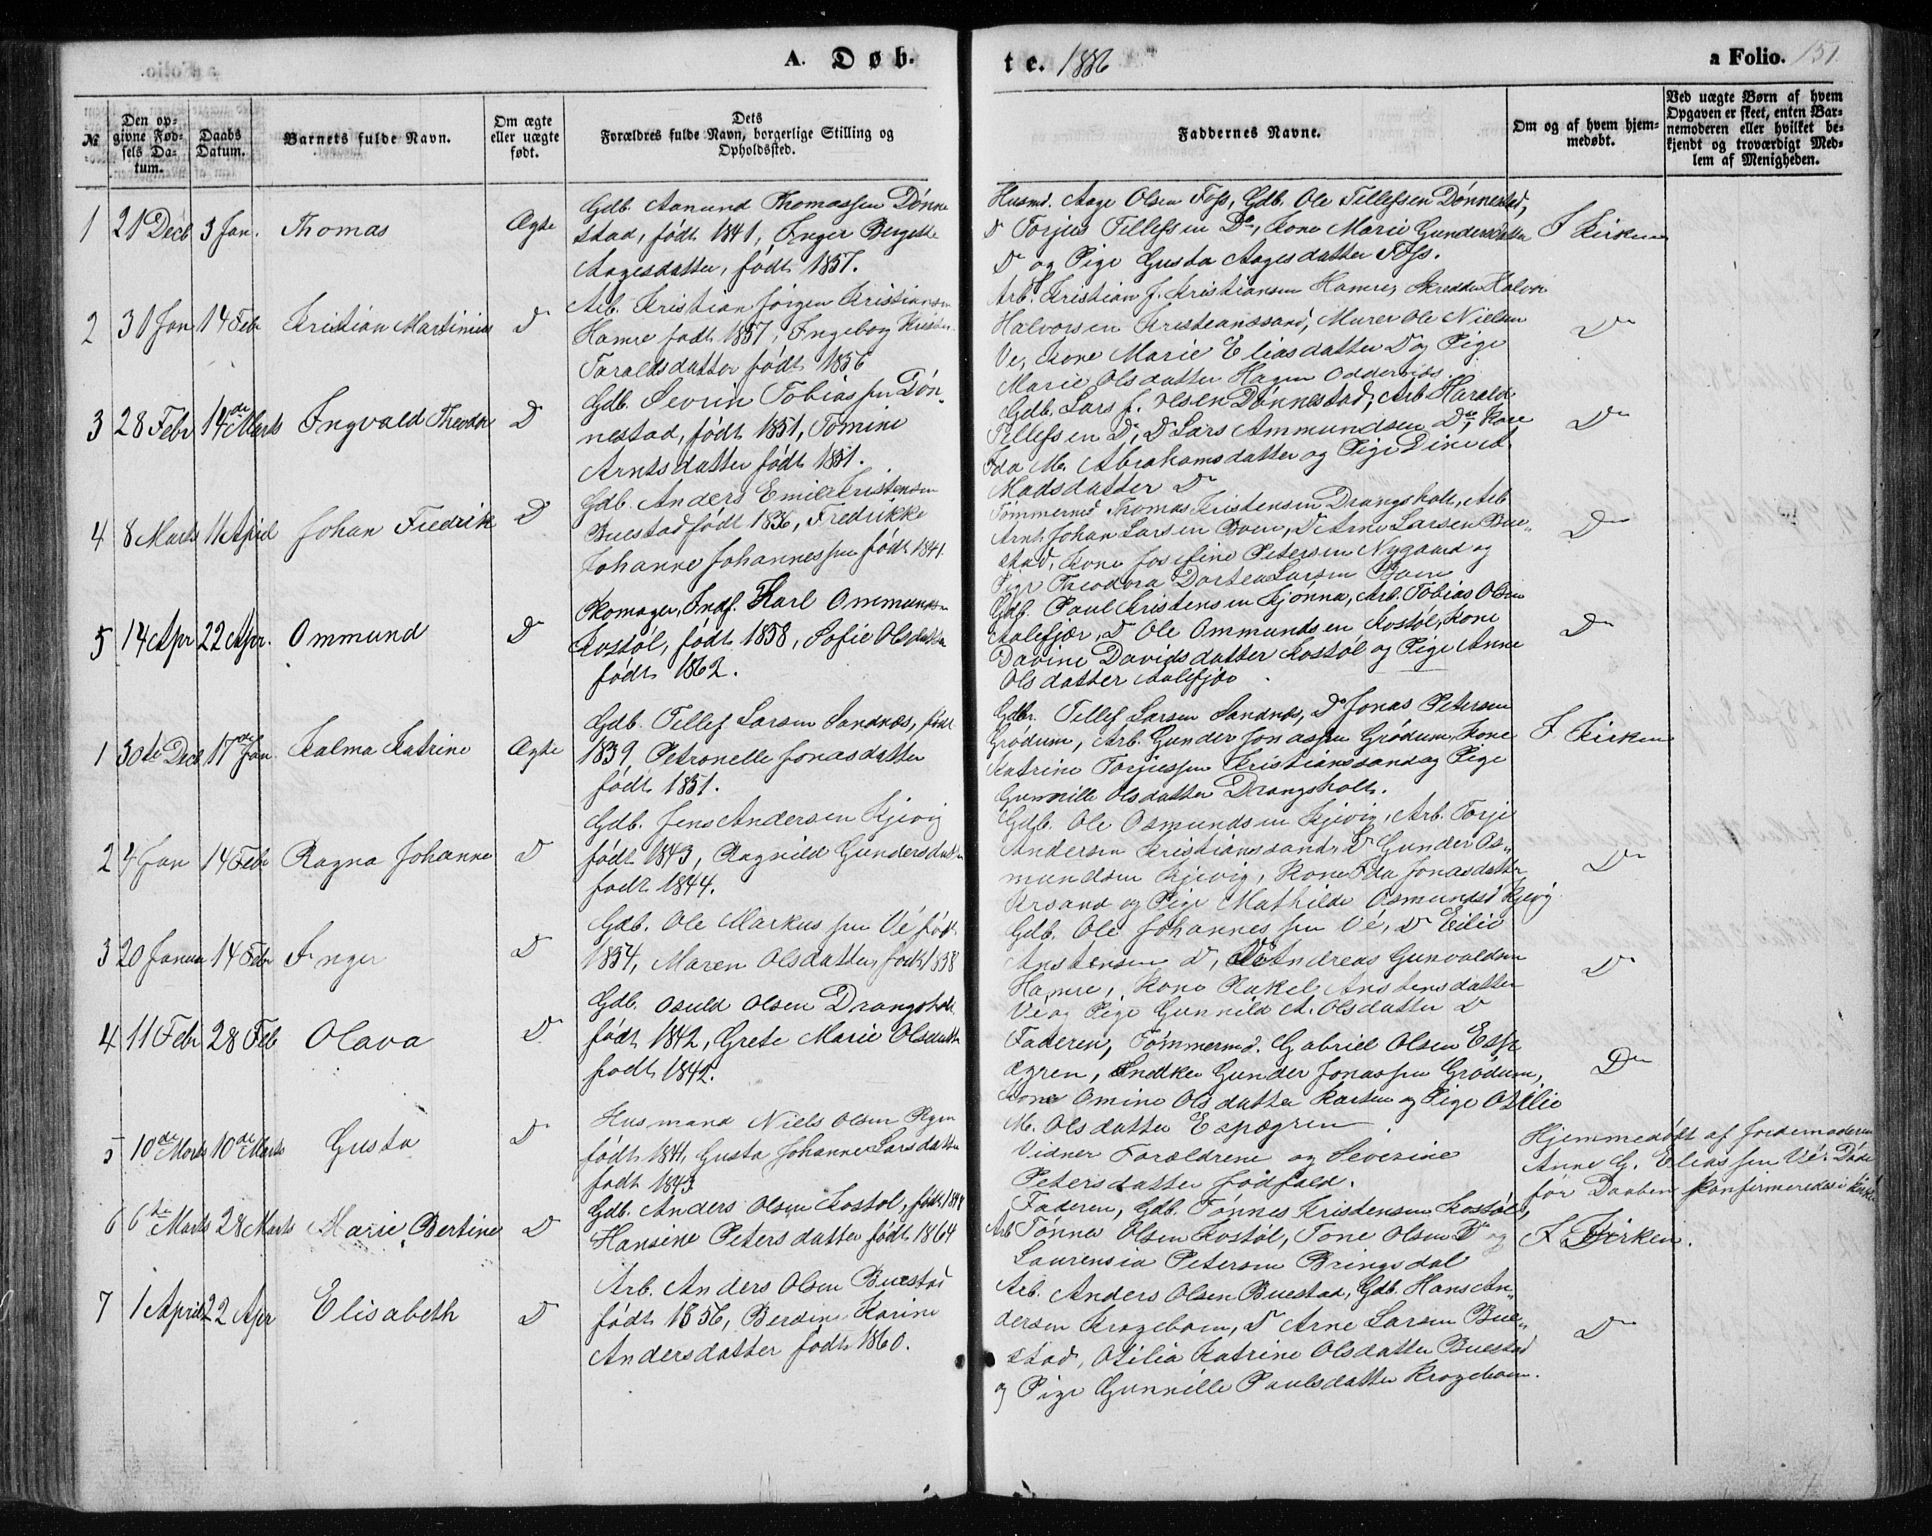 A. Døb-
te. 1886
a Folio. 151
№
Den opgivne Fødsels Datum.
Daabs Datum.
Barnets fulde Navn.
Om ægte eller uægte født.
Dets Forældres fulde Navn, borgerlige Stilling og Opholdsted.
Faddernes Navne.
Om og af hvem hjemmedøbt.
Ved uægte Børn af hvem Opgaven er skeet, enten Barnemoderen eller hvilket bekjendt og troværdigt Medlem af Menigheden.
1 21 Decb 3 Jan. Thomas Ægte
Gdb. Aanund Thomassen Dønne
stad, født 1841, Inger Bergitte
Aagesdatter, født 1857.
Husmd. Aage Olsen Foss, Gdb. Ole Tellefsen Dønnestad,
D Torjus Tellefsen Do, Kone Marie Gundersdatter
D og Pige Gusta Aagesdatter Foss.
I Kirken
2 31 Jan 14 Febr Kristian Martinius D
Arb. Kristian Jørgen Kristiansen
Hamre født 1857, Ingeborg Kirstine
Taraldsdatter født 1856
Arb. Kristian J. Kristiansen Hamre, Skrædder Halvor
Halvorsen Kristianssand, Murer Ole Nielsen
Ve, Kone Marie Eliasdatter D og Pige
Marie Olsdatter Hagen Oddernes.
Do
3 28 Febr 14de Marts Ingvald Theodor D
Gdb. Sevrin Tobiassen Døn-
nestad, født 1851, Tomine
Arntsdatter født 1851.
Gdb. Lars J. Olsen Dønnestad, Arb Harald
Tellefsen Do, D Lars Ammundsen Do, Kone
Ida M. Abrahamsdatter og Pige
Madsdatter Do
Do
4 8 Marts 11 April Johan Fredrik D
Gdb. Anders Emil Kristensen
Buestad født 1836, Fredrikke
Johanne Johannessen født 1841.
Tømmermd Thomas Kristensen Drangsholt, Arb
Arnt Johan Larsen Boen, D Arne Larsen Bue-
stad, Kone Josefine Petersen Nygaard og
Pige Theodora Dortea Larsen Boen
Do
5 14 Apr 22 Apr. Ommund D
Skomager, Indf. Karl Ommundsen
Kostøl, født 1858, Sofie Olsdatter
født 1862.
Gdb. Paul Kristensen Kjonna, Arb. Tobias Olsen
Aalefjær, D Ole Ommundsen Kostøl, Kone
Davine Davidsdatter Kostøl og Pige Anne
Olsdatter Aalefjær
Do
1 30te Decb 17de Jan. Kalma Katrine Ægte
Gdb. Tellef Larsen Sandnæs, født
1839, Petronelle Jonasdatter
født 1851.
Gdbr. Tellef Larsen Sandnæs, Do Jonas Petersen
Grødum, Arb. Gunder Jonassen Grødum, Kone
Katrine Torjussen Kristianssand og Pige
Gunnille Olsdatter Drangsholt.
I Kirken
2 4 Jan 14 Febr Ragna Johanne D
Gdb. Jens Andersen Kjevig
født 1843, Ragnild Gundersdatter
født 1844.
Gdb. Ole Osmundsen Kjevig, Arb. Torje
Andersen Kristianssand, D Gunder Os-
mundsen Kjevig, Kone Ida Jonasdatter
Krsand og Pige Mathilde Osmundsd Kjevig
Do
3 20 Januar 14 Febr Inger D
Gdb. Ole Markussen Vé født
1854, Maren Olsdatter, født 1858
Gdb. Ole Johannessen Vé, D Eilir
Anstensen D, Do Andreas Gunvaldsen
Hamre, Kone Rakel Anstensdatter
Ve og Pige Gunnild A. Olsdatter D
Do
4 11 Febr 28 Feb Olava D
Gdb. Osuld Olsen Drangsholt
født 1842, Grete Marie Olsdatter
født 1842.
Faderen, Tømmermd. Gabriel Olsen Espe
ægren, Snedker Gunder Jonassen Grødum,
Kone Omine Olsdatter Karten og Pige Otilie
M. Olsdatter Espægren.
Do
5 10de Marts 10de Marts Gusta D
Husmand Niels Olsen Ryen
født 1841, Gusta Johanne Larsdatter
født 1843
Vidner Forældrene og Severine
Petersdatter Fodfald.
Hjemmedøbt af Jordemoderen
Anne G. Eliassen Vé. Døde
før Daaben konfirmeredes i Kirke
6 6te Marts 28 Marts Marie Bertine D
Gdb. Anders Olsen Kostøl, født 1848
Hansine Petersdatter født 1864
Faderen, Gdb. Tønnes Kristensen Kostøl,
Arb Tønnes Olsen Kostøl, Tone Olsen Do og
Laurensia Petersen Bringsdal
I Kirken.
7 1 April 22 Apr Elisabeth D
Arb. Anders Olsen Buestad
født 1856, Berdine Karine
Andersdatter født 1860.
Arb. Anders Olsen Buestad, Gdb. Hans An-
dersen Krogeboen, D Arne Larsen Bue-
stad, Otilia Katrine Olsdatter Buestad
og Pige Gunnille Paulsdatter Krogeboen.
Do